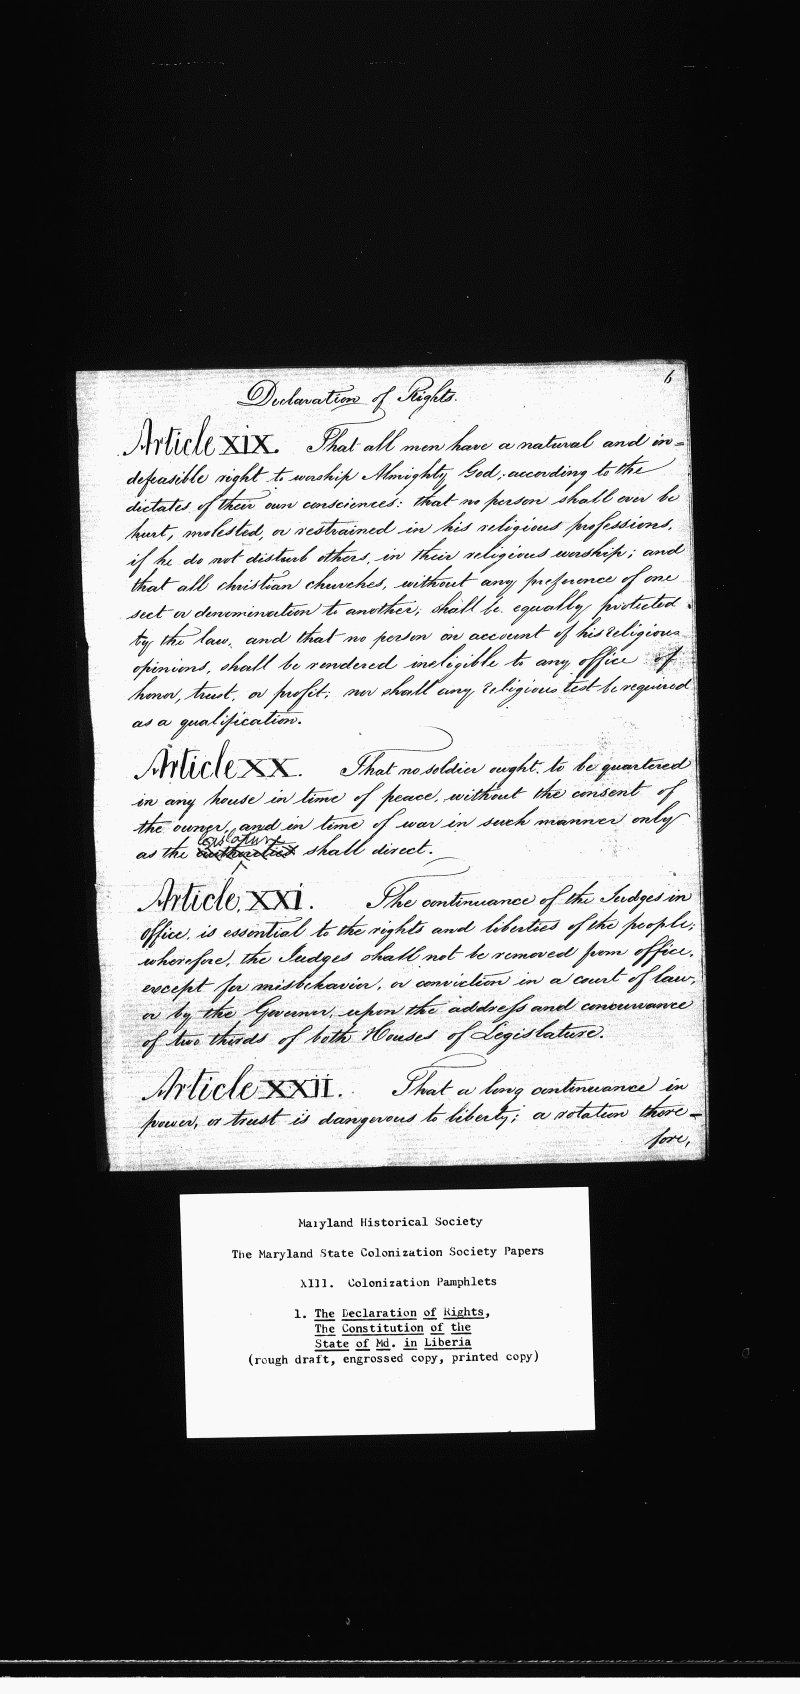 6
Declaration of Rights.
Article XIX. That all men have a natural and in=
defeasible right to worship Almighty God, according to the
dictates of their own consciences: that no person shall ever be
hurt, molested, or restrained in his religious professions,
if he do not disturb others, in their religious worship; and
that all christian churches, without any preference of one
sect or denomination to another, shall be equally protected
by the law, and that no person on account of his religious
opinions, shall be rendered ineligible to any office of
honor, trust, or profit; nor shall any religious test be required
as a qualification.
Article XX. That no soldier ought to be quartered
in any house in time of peace, without the consent of
the owner, and in time of war in such manner only
legislature
as the authorities shall direct.
Article XXI. The continuance of the Judges in
office, is essential to the rights and liberties of the people;
wherefore, the Judges shall not be removed from office,
except for misbehavior, or conviction in a court of law,
or by the Governor, upon the address and concurrance
of two thirds of both Houses of Legislature.
Article XXII. That a long continuance in
power, or trust is dangerous to liberty; a rotation there=
fore,
Maryland Historical Society
The Maryland State Colonization Society Papers
XIII. Colonization Pamphlets
1. The Declaration of Rights,
The Constitution of the
State of Md. in Liberia
(rough draft, engrossed copy, printed copy)